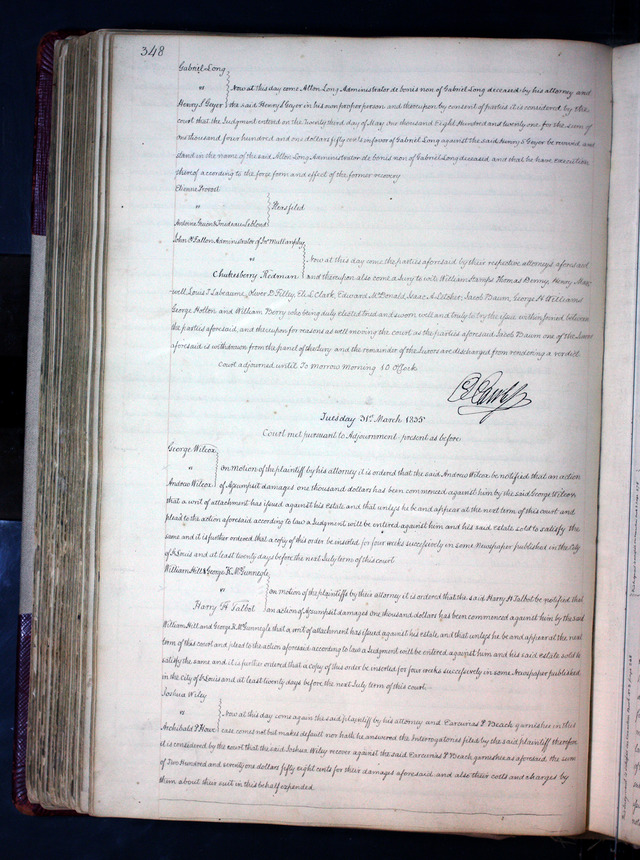 348
Gabriel Long
vs
Now at this day come Allon Long Administrator de bonis non of Gabriel Long deceased by his attorney and
Henry S Geyer the said Henry S Geyer in his own proper person and thereupon by consent of parties it is considered by the
court that the Judgment entered on the Twenty third day of May one thousand Eight Hundred and twenty one for the sum of
one thousand four hundred and one dollars fifty cents in favor of Gabriel Long against the said Henry S Geyer be revived and
stand in the name of the said Allon Long Administrator de bonis non of Gabriel Long deceased and that he have execution
thereof according to the force form and effect of the former recovery
Etienne Provost
vs
Pleas filed
Antoine & Leblond
John O Fallon Administrator of Jno Mullanphy
vs
Now at this day come the parties aforesaid by their respective attorneys aforesaid
Chukesberry Redman and thereupon also come a Jury to wit William Stamps Thomas Denny, Henry Max
-well Louis T Labeaume, Oliver D Filley, Eli L Clark, Edward McDonald, Isaac A Letcher, Jacob Baum, George H Williams
George Holton and William Berry who being duly elected tried and sworn well and truly to try the issue within joined between
the parties aforesaid, and thereupon for reasons as well moving the court as the parties aforesaid Jacob Baum one of the Jurors
aforesaid is withdrawn from the panel of the Jury and the remainder of the Jurors are discharged from rendering a verdict
Court adjourned until To morrow morning 10 OClock
Tuesday 31st March 1835
Court met pursuant to Adjournment present as before
George Wilcox
vs
on motion of the plaintiff by his attorney it is ordered that the said Andrew Wilcox be notified that an action
Andrew Wilcox of Assumpsit damages one thousand dollars has been commenced against him by the said George Wilcox
that a writ of attachment has issued against his estate and that unless he be and appear at the next term of this court and
plead to the action aforesaid according to law a Judgment will be entered against him and his said estate sold to satisfy the
same and it is further ordered that a copy of this order be inserted for four weeks successively in some Newspaper published in the City
of St Louis and at least twenty days before the next July term of this court
William Hill & George K McGunnegle
vs
on motion of the plaintiffs by their attorney it is ordered that the said Harry H Talbot be notified that
Harry H Talbot an action of Assumpsit damages one thousand dollars has been commenced against him by the said
William Hill and George K McGunnegle that a writ of attachment has issued against his estate, and that unless he be and appear at the next
term of this court and plead to the action aforesaid according to law a Judgment will be entered against him and his said estate sold to
satisfy the same and it is further ordered that a copy of this order be inserted for four weeks successively in some Newspaper published
in the city of St Louis and at least twenty days before the next July term of this court
Joshua Wiley
vs
Now at this day come again the said plaintiff by his attorney and P Beach garnishee in this
Archibald P Howe case comes not but makes default nor hath he answered the Interrogatories filed by the said plaintiff therefore
it is considered by the court that the said Joshua Wiley recover against the said P Beach garnishee as aforesaid the sum
of Two Hundred and seventy one dollars fifty eight cents for their damages aforesaid and also their costs and charges by
them about their suit in this behalf expended